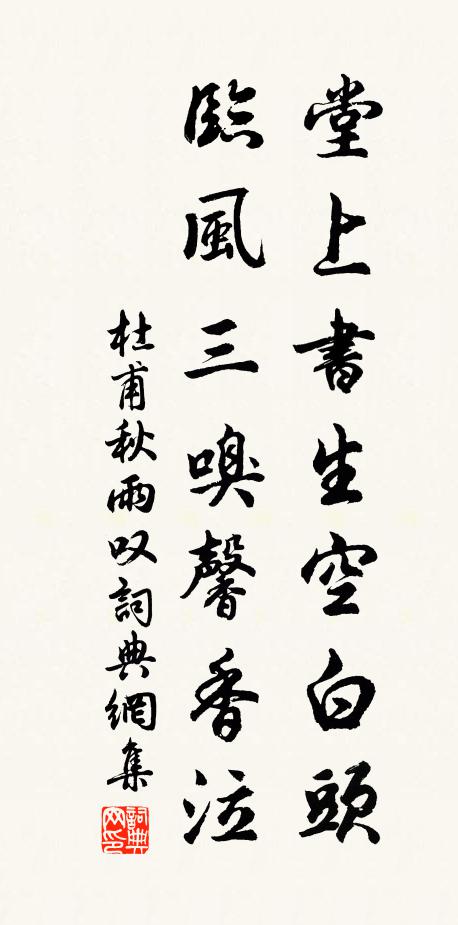 堂上書生空白頭
臨風三嗅馨香泣
杜甫秋雨叹詞典網集
詞典网印